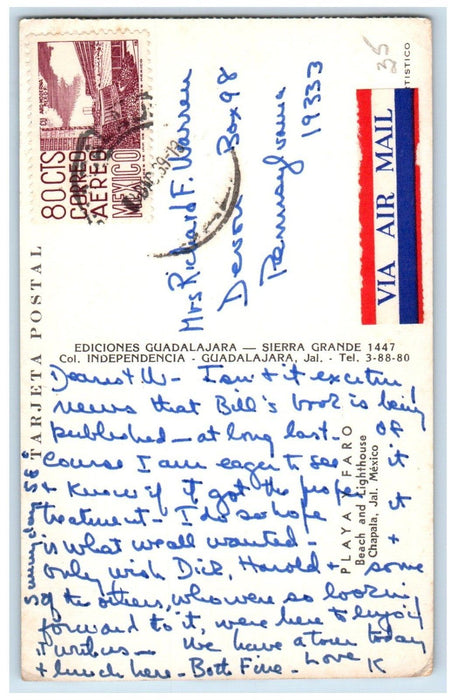 35
80 CTS
CORREO
AEREO
MEXICO
Mrs Richard F. Warren
Devon Box 98
Pennsylvania
19333
VIA AIR MAIL
ARTISTICO
TARJETA POSTAL
EDICIONES GUADALAJARA — SIERRA GRANDE 1447
Col. INDEPENDENCIA - GUADALAJARA, Jal. - Tel. 3-88-80
PLAYA Y FARO
Beach and Lighthouse
Chapala, Jal. México
Dearest W - Isn't it excitin
news that Bill's book is being
published - at long last - Of
course I am eager to see it
+ know if it got the proper
treatment - I do so hope it
is what we all wanted - +
only wish Dick, Harold + some
of the others, who were so looking
forward to it, were here to enjoy
it with us - We have a tour today
+ lunch here - Both Fine - Love K
Sunny days 58°